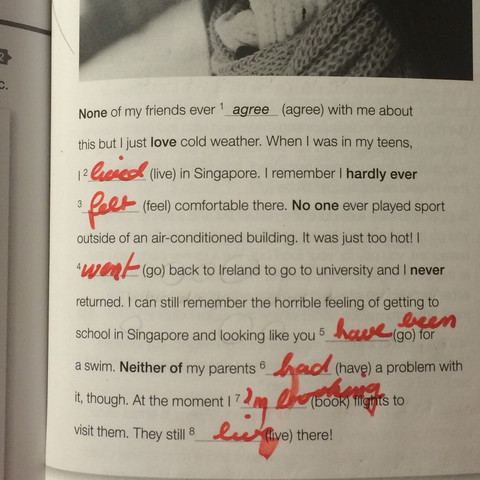 2
c.
None of my friends ever ¹ agree (agree) with me about
this but I just love cold weather. When I was in my teens,
I ² lived (live) in Singapore. I remember I hardly ever
³ felt (feel) comfortable there. No one ever played sport
outside of an air-conditioned building. It was just too hot! I
⁴ went (go) back to Ireland to go to university and I never
returned. I can still remember the horrible feeling of getting to
school in Singapore and looking like you ⁵ have been (go) for
a swim. Neither of my parents ⁶ had (have) a problem with
it, though. At the moment I ⁷ 'm booking (book) flights to
visit them. They still ⁸ live (live) there!